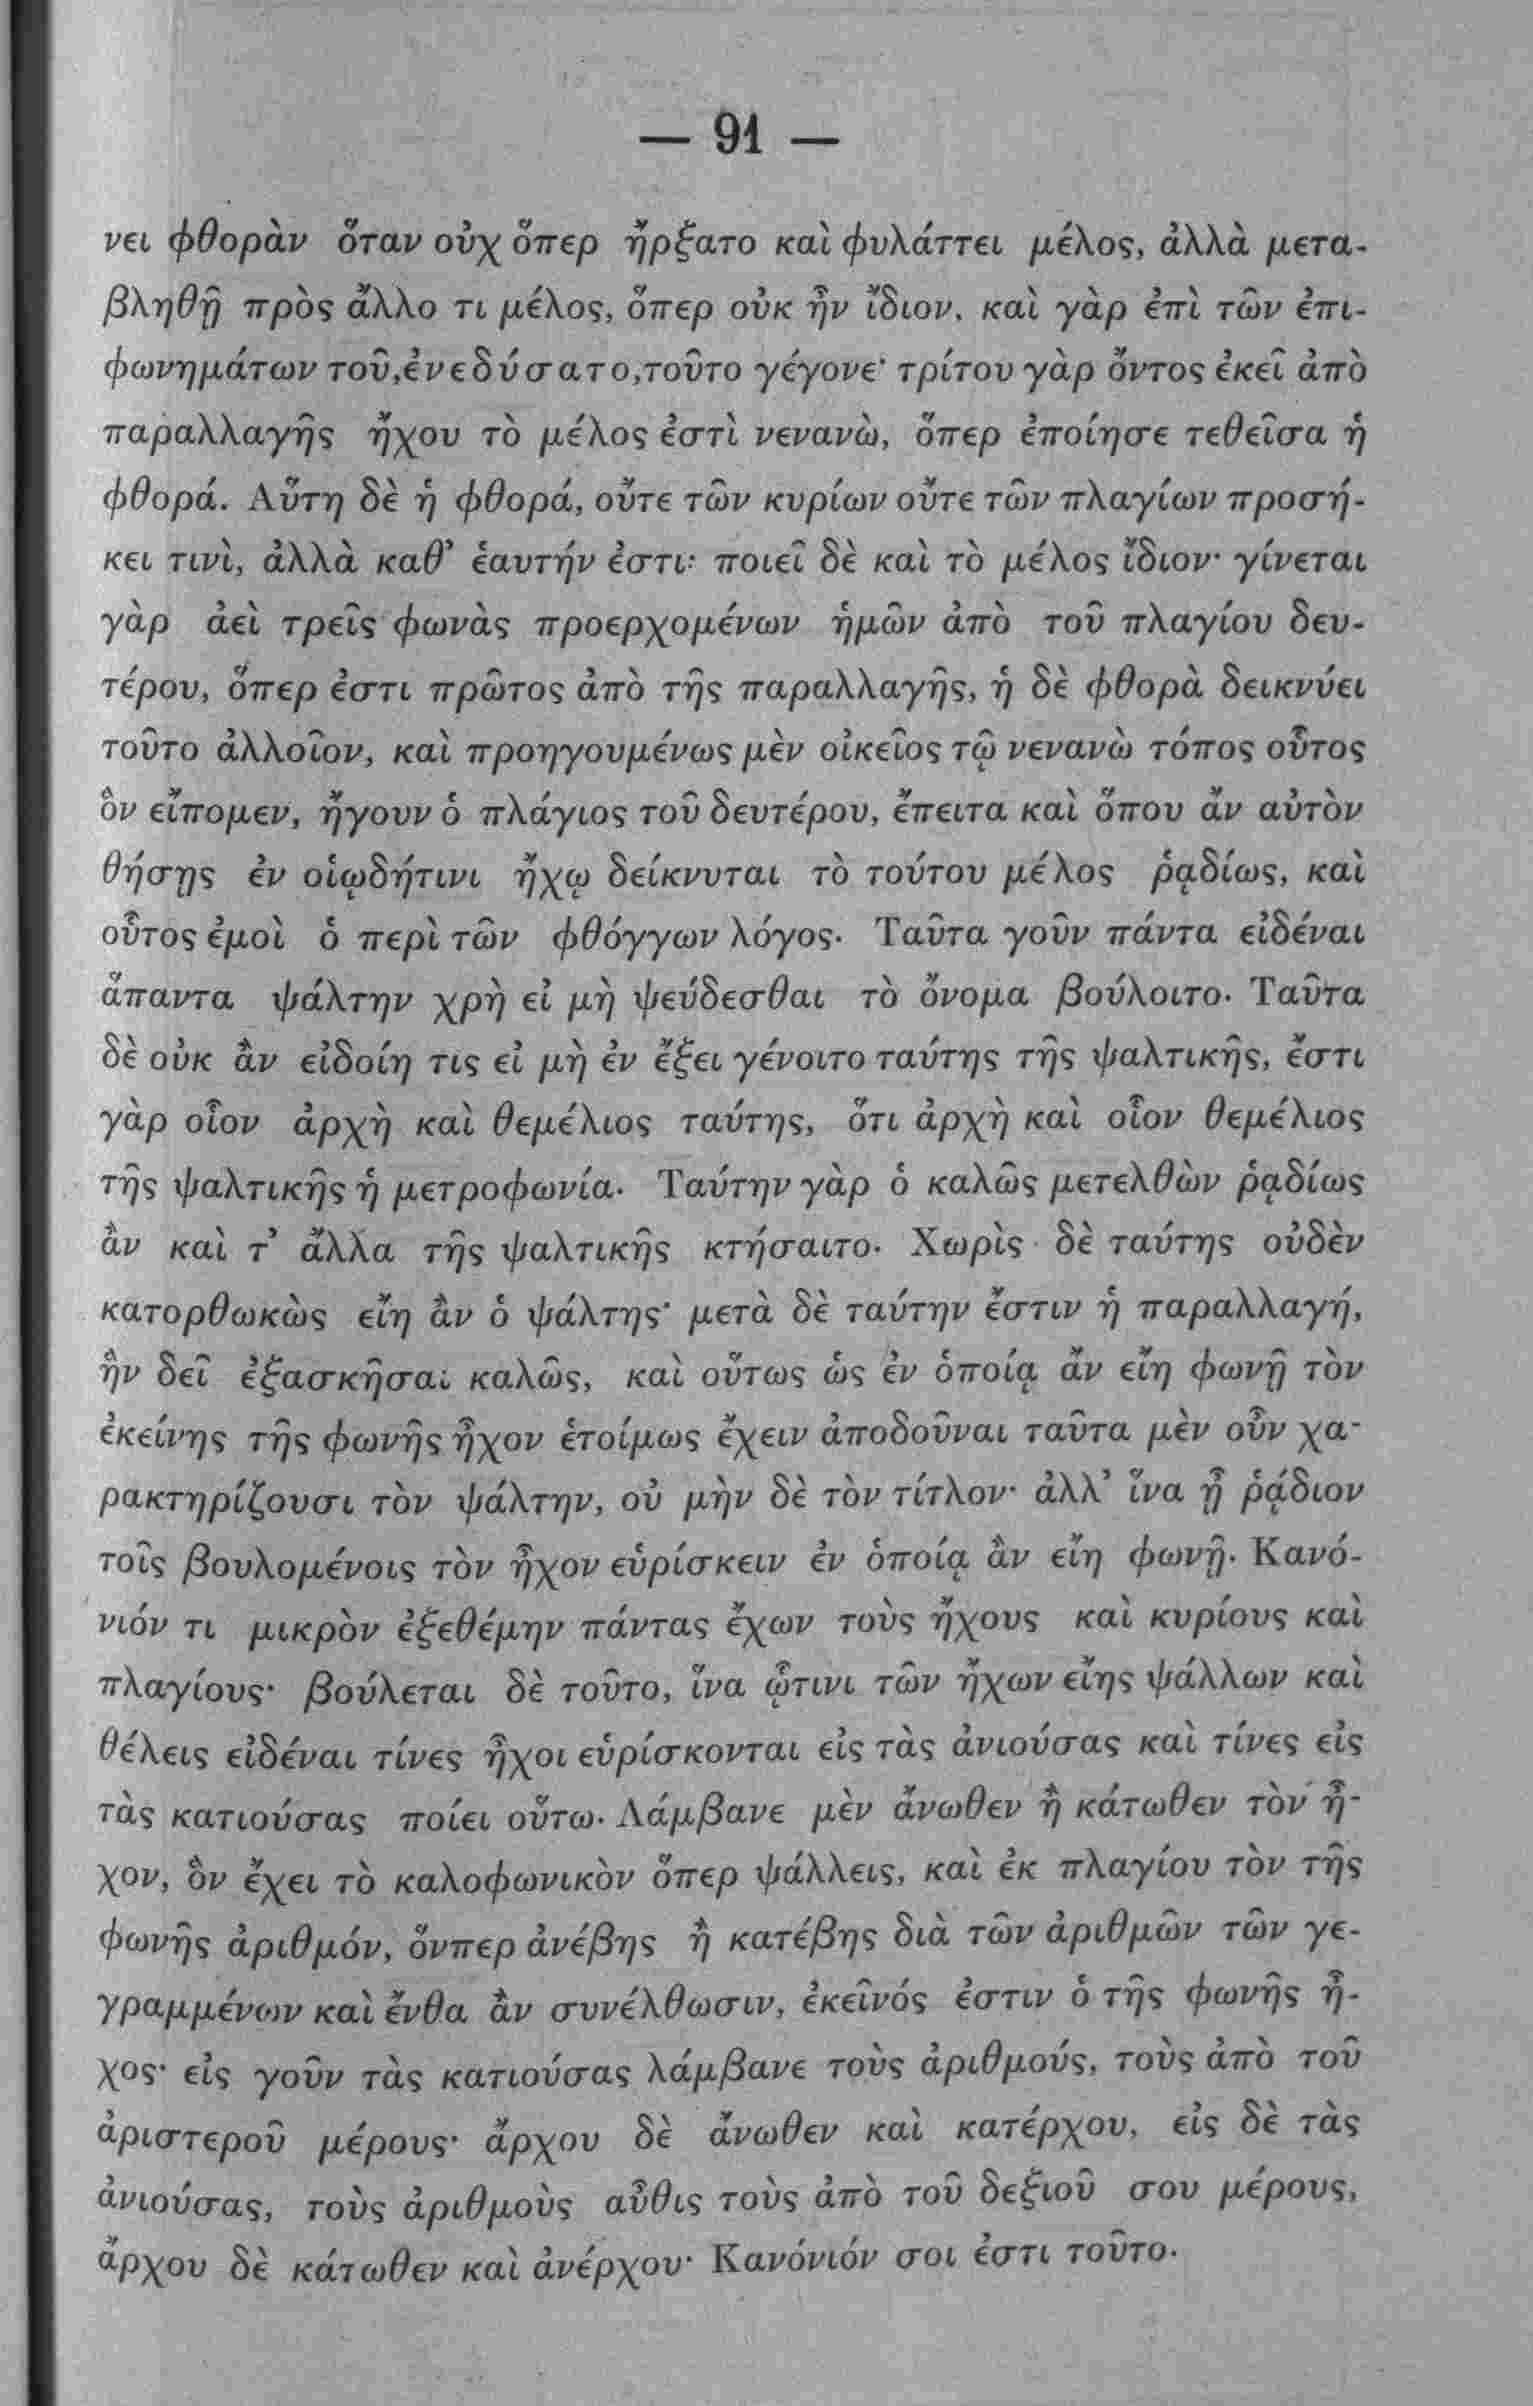 — 91 —
νει φθορὰν ὅταν οὐχ ὅπερ ἤρξατο καὶ φυλάττει μέλος, ἀλλὰ μετα-
βληθῇ πρὸς ἄλλο τι μέλος, ὅπερ οὐκ ἦν ἴδιον, καὶ γὰρ ἐπὶ τῶν ἐπι-
φωνημάτων τοῦ,ἐνεδύσατο,τοῦτο γέγονε· τρίτου γὰρ ὄντος ἐκεῖ ἀπὸ
παραλλαγῆς ἤχου τὸ μέλος ἐστὶ νενανὼ, ὅπερ ἐποίησε τεθεῖσα ἡ
φθορά. Αὕτη δὲ ἡ φθορά, οὔτε τῶν κυρίων οὔτε τῶν πλαγίων προσή-
κει τινὶ, ἀλλὰ καθ’ ἑαυτήν ἐστι· ποιεῖ δὲ καὶ τὸ μέλος ἴδιον· γίνεται
γὰρ ἀεὶ τρεῖς φωνὰς προερχομένων ἡμῶν ἀπὸ τοῦ πλαγίου δευ-
τέρου, ὅπερ ἐστι πρῶτος ἀπὸ τῆς παραλλαγῆς, ἡ δὲ φθορὰ δεικνύει
τοῦτο ἀλλοῖον, καὶ προηγουμένως μὲν οἰκεῖος τῷ νενανὼ τόπος οὗτος
ὃν εἴπομεν, ἤγουν ὁ πλάγιος τοῦ δευτέρου, ἔπειτα καὶ ὅπου ἄν αὐτὸν
θήσῃς ἐν οἱῳδήτινι ἤχῳ δείκνυται τὸ τούτου μέλος ῥᾳδίως, καὶ
οὗτος ἐμοὶ ὁ περὶ τῶν φθόγγων λόγος. Ταῦτα γοῦν πάντα εἰδέναι
ἅπαντα ψάλτην χρὴ εἰ μὴ ψεύδεσθαι τὸ ὄνομα βούλοιτο. Ταῦτα
δὲ οὐκ ἂν εἰδοίη τις εἰ μὴ ἐν ἕξει γένοιτο ταύτης τῆς ψαλτικῆς, ἔστι
γὰρ οἷον ἀρχὴ καὶ θεμέλιος ταύτης, ὅτι ἀρχὴ καὶ οἷον θεμέλιος
τῆς ψαλτικῆς ἡ μετροφωνία. Ταύτην γὰρ ὁ καλῶς μετελθὼν ῥᾳδίως
ἂν καὶ τ’ ἄλλα τῆς ψαλτικῆς κτήσαιτο. Χωρὶς δὲ ταύτης οὐδὲν
κατορθωκὼς εἴη ἂν ὁ ψάλτης· μετὰ δὲ ταύτην ἔστιν ἡ παραλλαγή,
ἣν δεῖ ἐξασκῆσαι καλῶς, καὶ οὕτως ὡς ἐν ὁποίᾳ ἄν εἴη φωνῇ τὸν
ἐκείνης τῆς φωνῆς ἦχον ἑτοίμως ἔχειν ἀποδοῦναι ταῦτα μὲν οὖν χα-
ρακτηρίζουσι τὸν ψάλτην, οὐ μὴν δὲ τὸν τίτλον· ἀλλ’ ἵνα ᾖ ῥᾴδιον
τοῖς βουλομένοις τὸν ἦχον εὑρίσκειν ἐν ὁποίᾳ ἂν εἴη φωνῇ. Κανό-
νιόν τι μικρὸν ἐξεθέμην πάντας ἔχων τοὺς ἤχους καὶ κυρίους καὶ
πλαγίους· βούλεται δὲ τοῦτο, ἵνα ᾧτινι τῶν ἤχων εἴης ψάλλων καὶ
θέλεις εἰδέναι τίνες ἦχοι εὑρίσκονται εἰς τὰς ἀνιούσας καὶ τίνες εἰς
τὰς κατιούσας ποίει οὕτω. Λάμβανε μὲν ἄνωθεν ἢ κάτωθεν τὸν ἦ-
χον, ὃν ἔχει τὸ καλοφωνικὸν ὅπερ ψάλλεις, καὶ ἐκ πλαγίου τὸν τῆς
φωνῆς ἀριθμόν, ὅνπερ ἀνέβης ἢ κατέβης διὰ τῶν ἀριθμῶν τῶν γε-
γραμμένων καὶ ἔνθα ἂν συνέλθωσιν, ἐκεῖνός ἐστιν ὁ τῆς φωνῆς ἦ-
χος· εἰς γοῦν τὰς κατιούσας λάμβανε τοὺς ἀριθμούς, τοὺς ἀπὸ τοῦ
ἀριστεροῦ μέρους· ἄρχου δὲ ἄνωθεν καὶ κατέρχου, εἰς δὲ τὰς
ἀνιούσας, τοὺς ἀριθμοὺς αὖθις τοὺς ἀπὸ τοῦ δεξιοῦ σου μέρους,
ἄρχου δὲ κάτωθεν καὶ ἀνέρχου· Κανόνιόν σοι ἐστι τοῦτο.